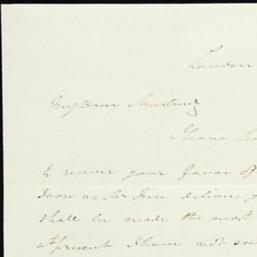 London
My Dear
I have
to receive your favor of
soon as Mr delivers
shall be made the most
at present I have not